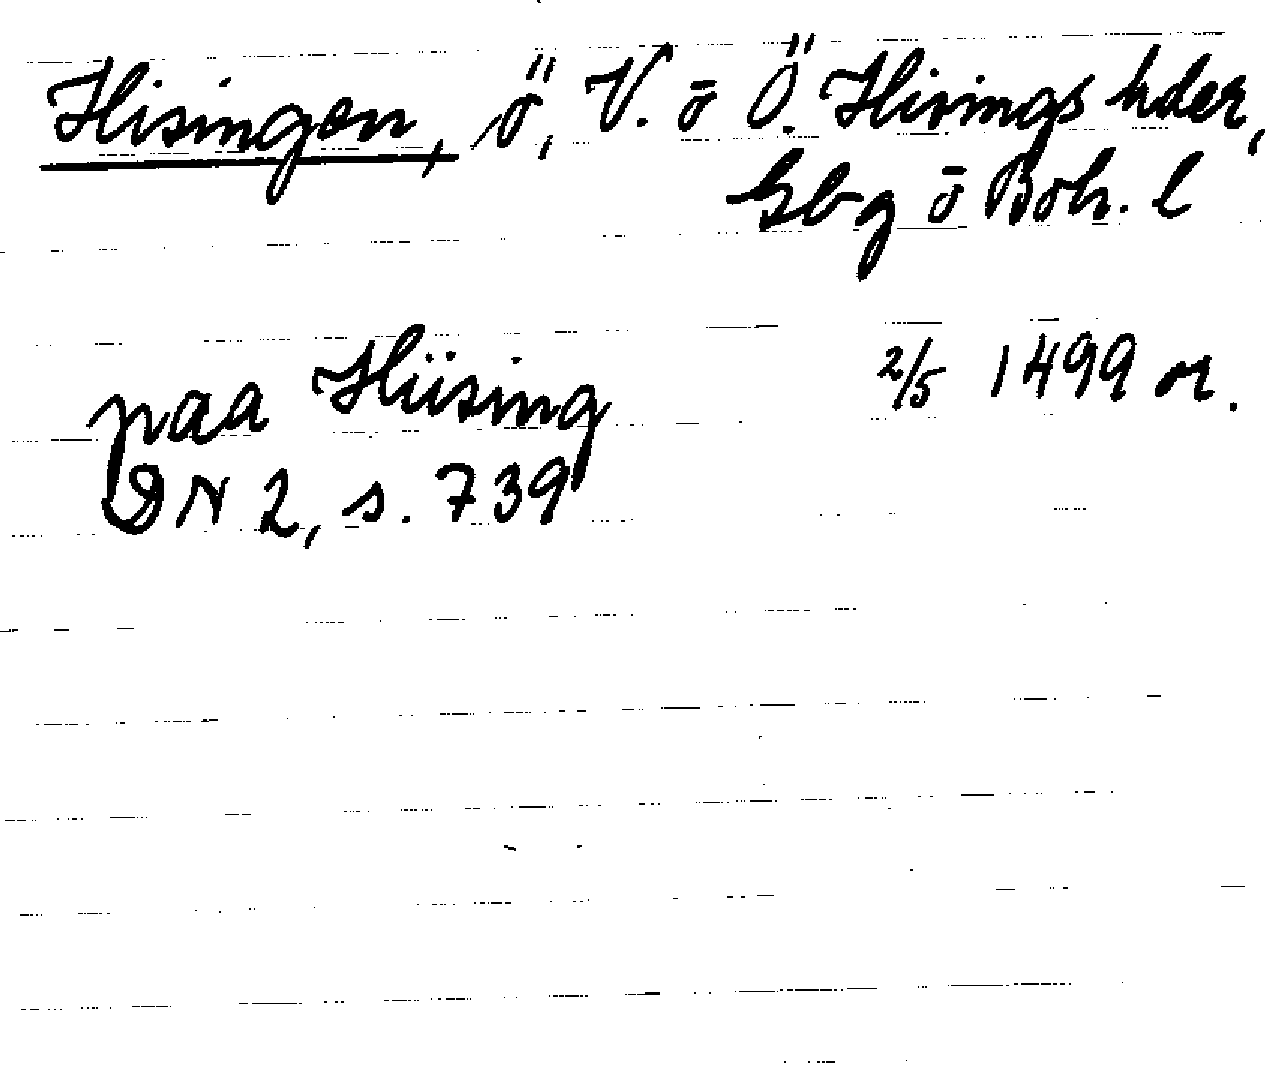 Hisingen, ö, V. o Ö. Hisings hder,
Gbg o Boh. l
paa Hiising 2/5 1499 or.
DN 2, s. 739